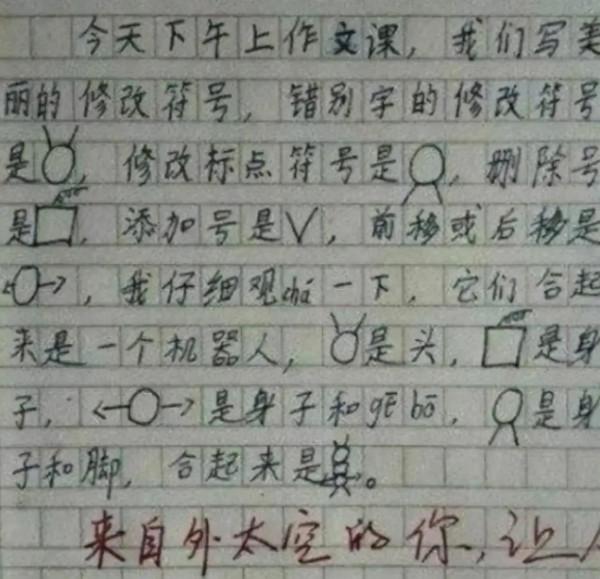 今天下午上作文课，我们写美
丽的修改符号，错别字的修改符号
是，修改标点符号是，删除号
是，添加号是∨，前移或后移是
，我仔细观chá一下，它们合起
来是一个机器人，是头，是身
子，是身子和gē bō，是身
子和脚，合起来是。
来自外太空的你，让